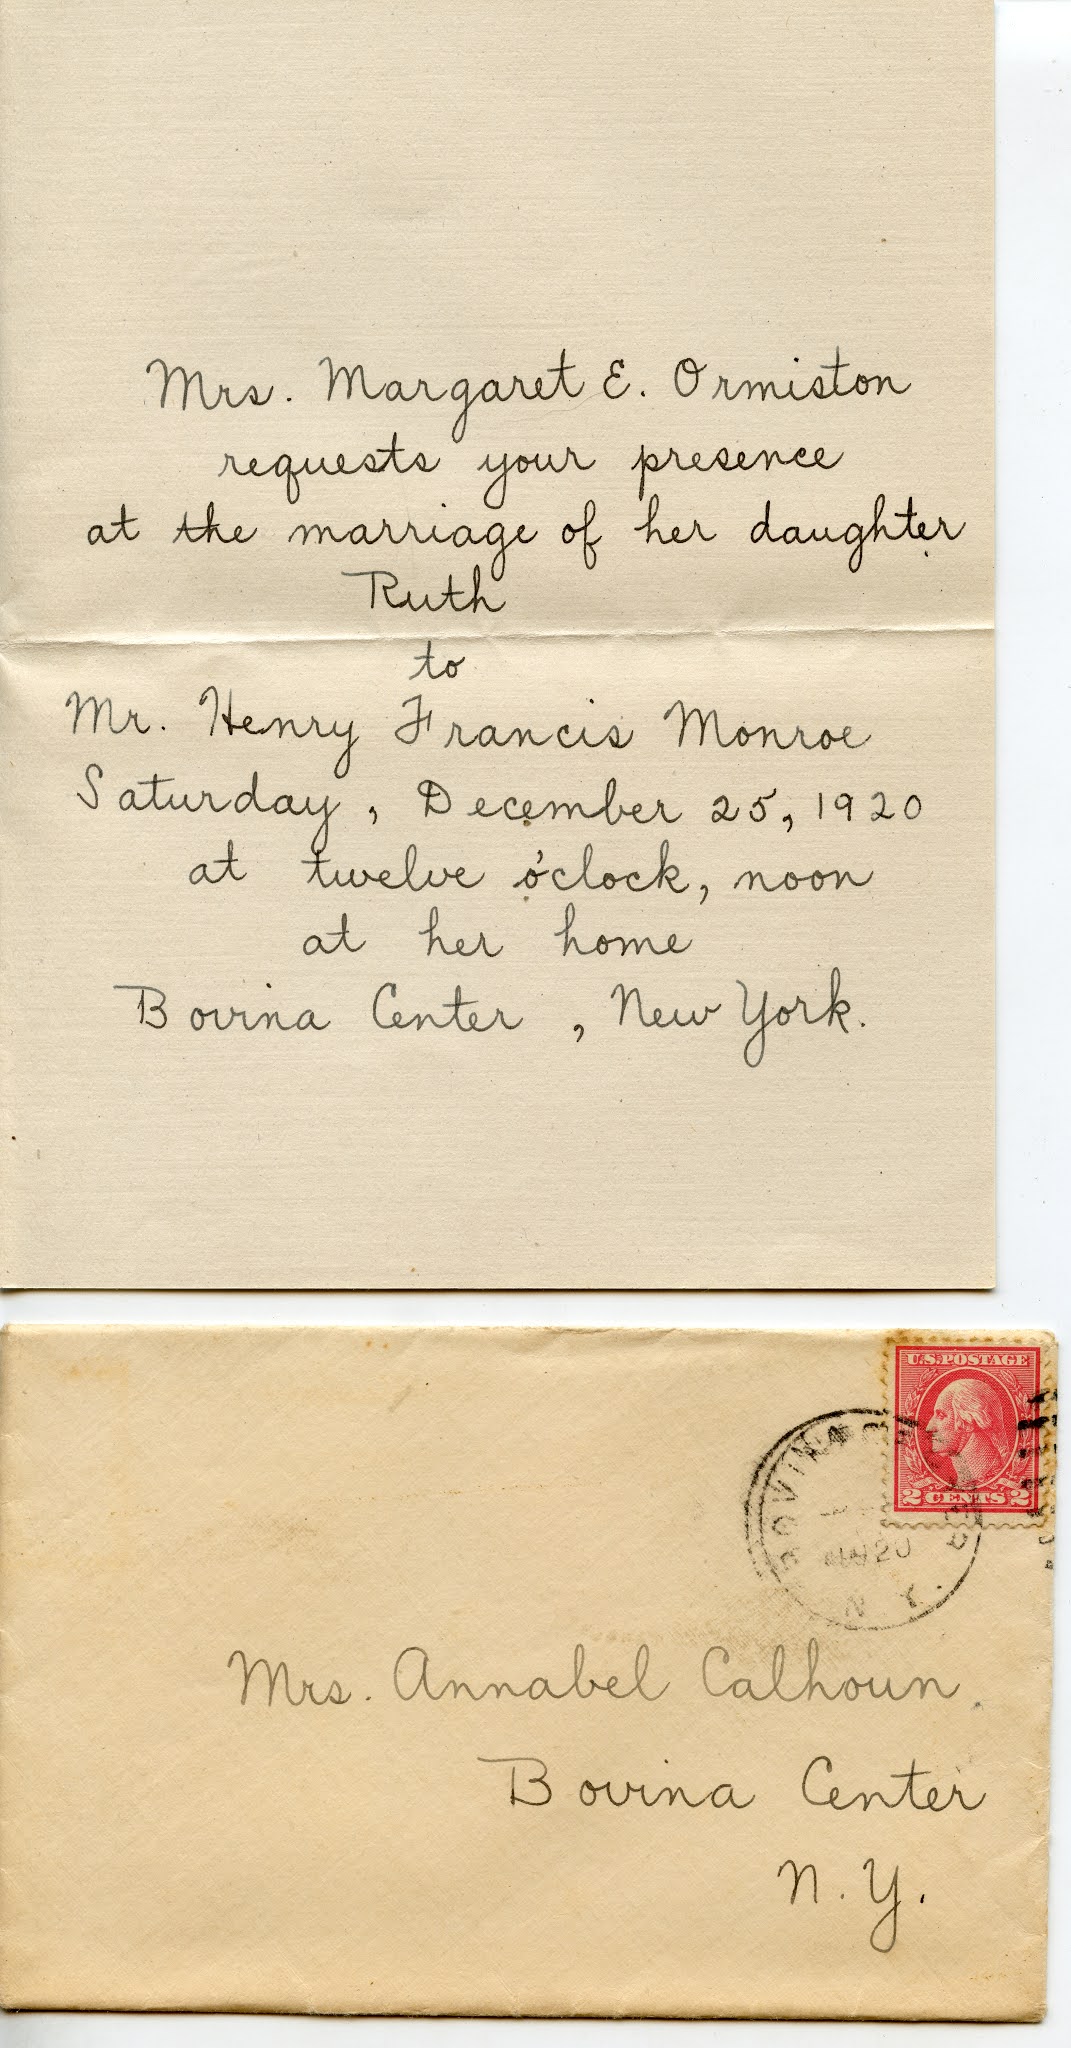 Mrs. Margaret E. Ormiston
requests your presence
at the marriage of her daughter
Ruth
to
Mr. Henry Francis Monroe
Saturday, December 25, 1920
at twelve o'clock, noon
at her home
Bovina Center, New York.
U.S. POSTAGE
2 CENTS 2
BOVINA
N.Y.
Mrs. Annabel Calhoun.
Bovina Center
N.Y.